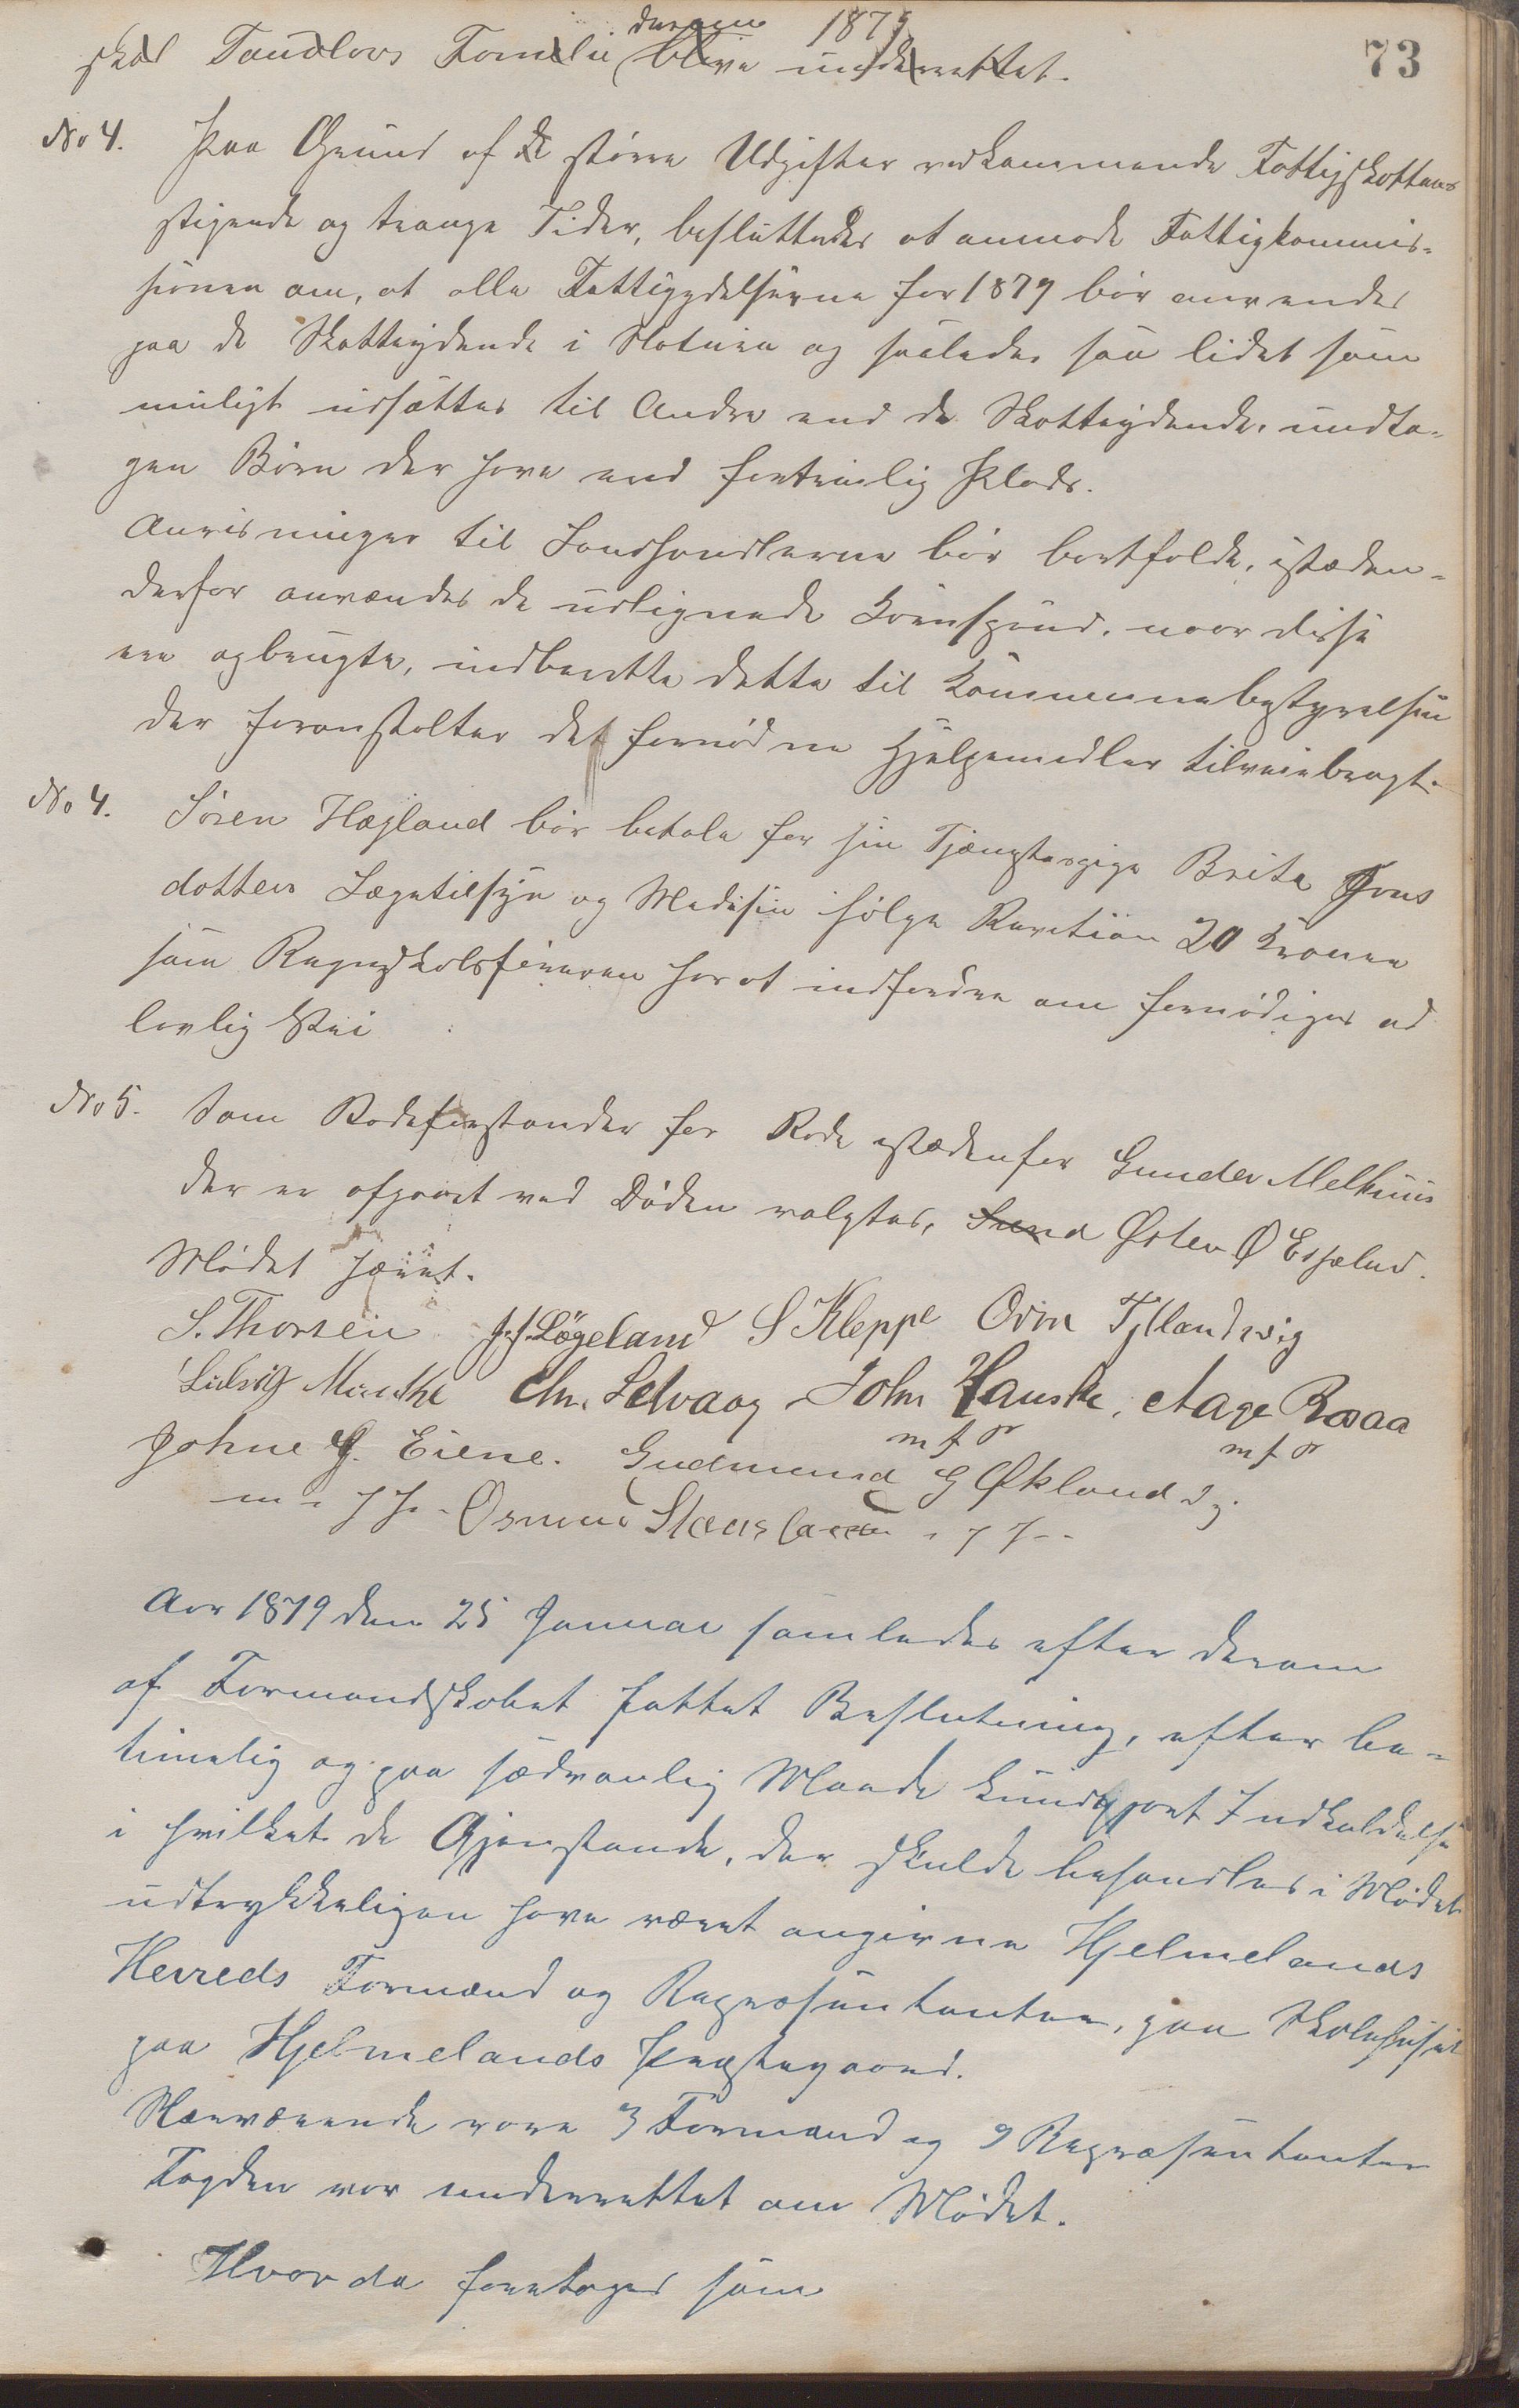 derom 1879
73
skal Tandlovs Familie blive underrettet.
No 4. Paa Grund af de større Udgifter vedkommende Fattigskattens
stigende og trange Tider, besluttedes at anmode Fattigkommis-
sionen om, at alle Fattigydelserne for 1879 bør anvendes
paa de Skatteydende i Naturen og saaledes saa lidet som
muligt udsættes til Andre end de Skatteydende, undta-
gen Børn der have end fortrinlig Plads.
Anvisninger til Landhandlerne bør bortfalde, istæden-
derfor anvændes de udlignede Kornspund, naar disse
ere opbrugte, indberette dette til Kommunebestyrelsen
der foranstalter det fornødne Hjælpemidler tilveiebragt.
No 4. Søren Hægland bør betale for sin Tjenestepige Brita Jons
dotters Lægetilsyn og Medisin ifølge 20 Kroner
som Regnskabsføreren har at indfordre om fornødiges ad
lovlig Vei
No 5. Som Rodeforstander for Rode istædenfor Gunder Melhuus
der er afgaaet ved Døden valgtes, Østen Ø Espeland.
Mødet hævet.
S. Thorsen J. J. Løgeland S Kleppe Orm Tytlandsvig
Ludvig Munthe Chr. Selvaag John Hauske, Aage Raaa
m f P m f P
Johne J. Eiene. Gudmund G Økland
Osmun
Aar 1879 den 25 Januar samledes efter derom
af Formandskabet fattet Beslutning, efter be-
timelig og paa sædvanlig Maade kundgjort Indkaldelse
i hvilket de Gjenstande, der skulde behandles i Mødet
udtrykkeligen have været angivne Hjelmelands
Herreds Formænd og Repræsentanter, paa Skolehuset
paa Hjelmelands Præstegaard.
Nærværende vare 3 Formænd og 9 Repræsentanter
Fogden var underrettet om Mødet.
Hvor da foretoges som